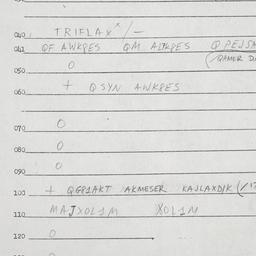 040 TRIFLAX^ / —
041 QF AWKPES QM ALTKPES Q PEJSA
050 O (QAMER D
060 + QSYN AWKPES
070 O
080 O
090 O
100 + QGP1AKT /AKMESER KAJLAXDIK (/
110 MAJXOL1M XOL1M
120 O